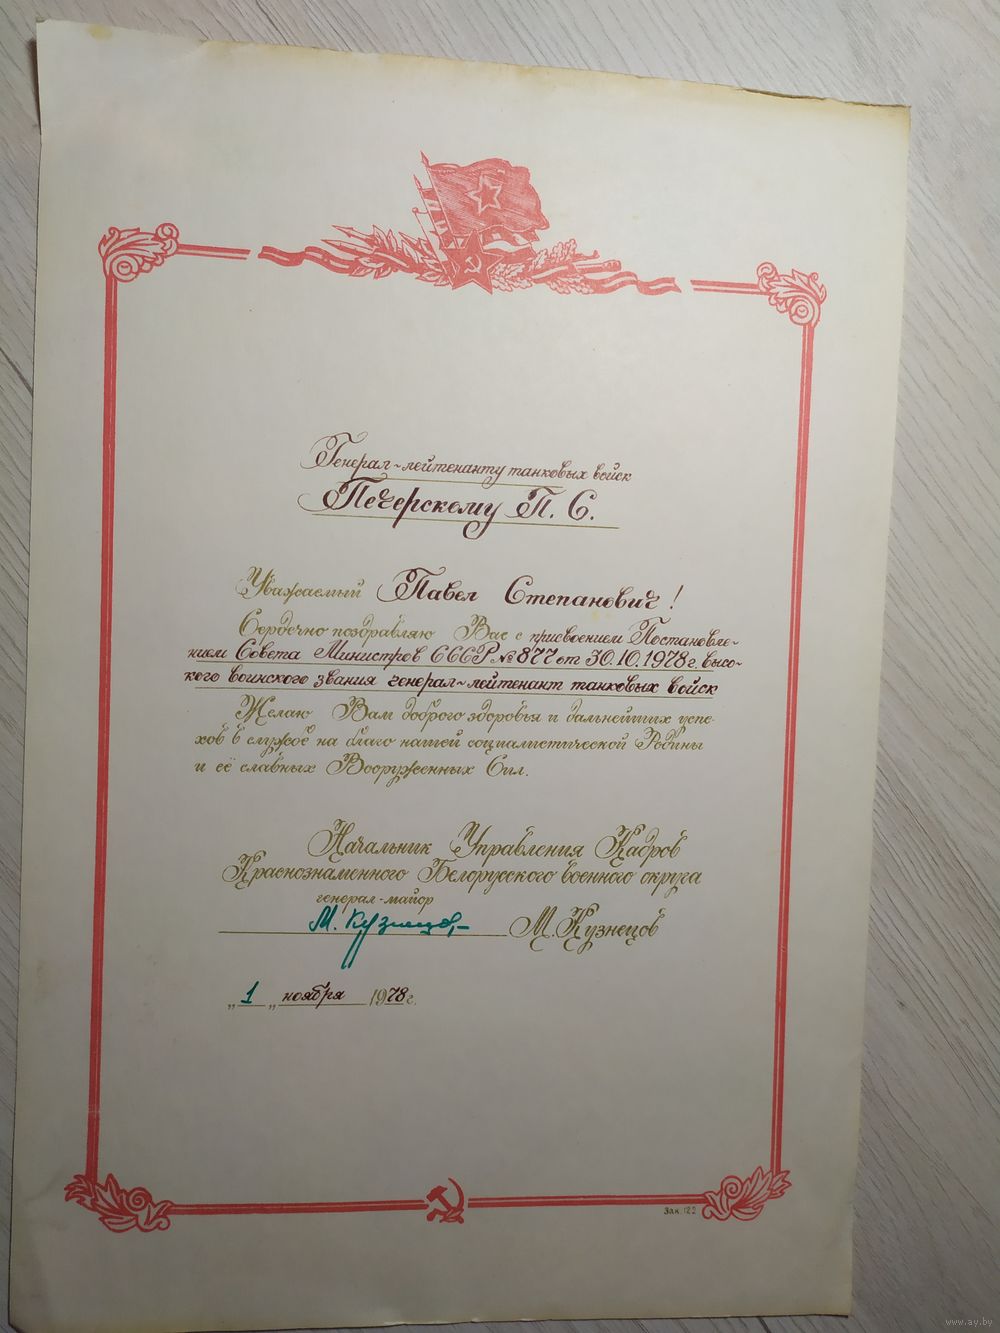 Генерал-лейтенанту танковых войск
Печерскому П. С.
Уважаемый Павел Степанович!
Сердечно поздравляю Вас с присвоением Постановле-
нием Совета Министров СССР № 877 от 30.10.1978 г. высо-
кого воинского звания генерал-лейтенант танковых войск
Желаю Вам доброго здоровья и дальнейших успе-
хов в службе на благо нашей социалистической Родины
и её славных Вооруженных Сил.
Начальник Управления Кадров
Краснознаменного Белорусского военного округа
генерал-майор
М. Кузнецов М. Кузнецов
„1„ ноября 1978 г.
Зак. 122
www.ay.by